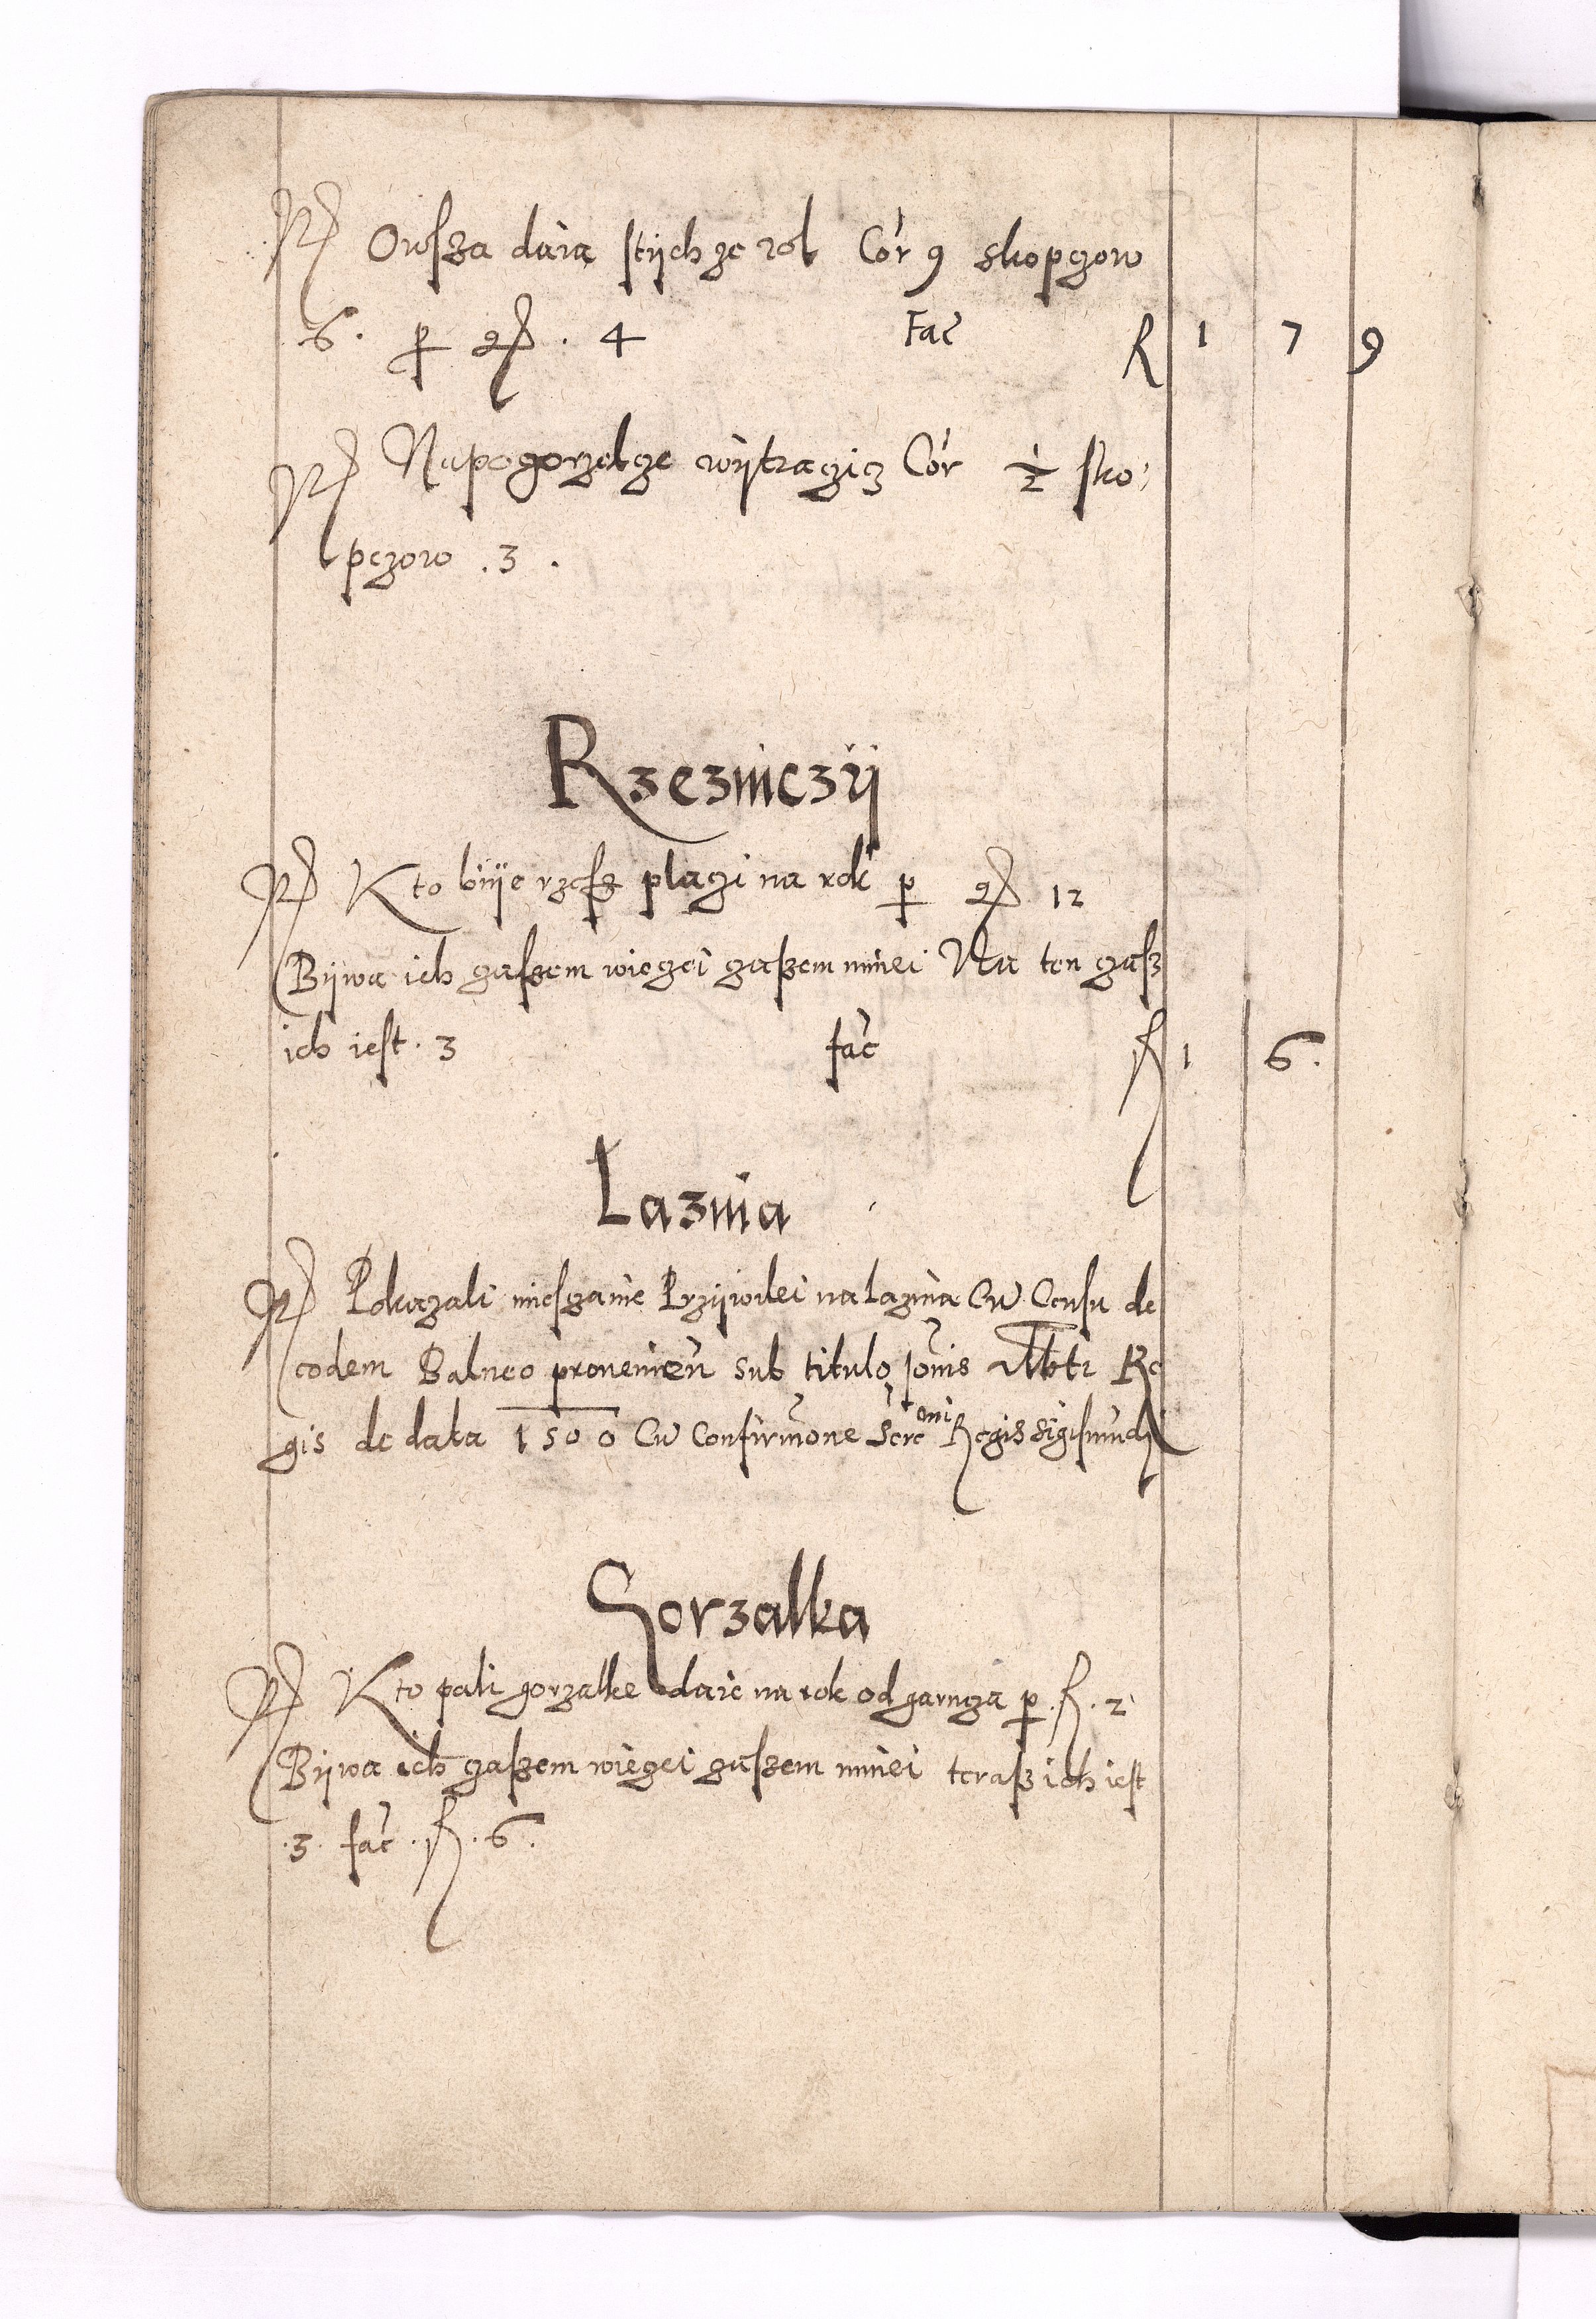 Owsza daia stych ze rol Cor 9 skopczow
6. p gr. 4 Fac fl 1 7 9
Na pogorzelcze wytraczicz Cor ½ sko:
pczow .3.
Rzezniczy
Kto bije rzesz placzi na rok p gr 12
Bywa ich czaszem wieczei czaszem mniei Na ten czasz
ich iest. 3 fac fl 1 6.
Laznia
Pokazali miesczanie Przywilei na laznia Cu Censu de
eodem Balneo provenien sub titulo Joannis Albtr Re
gis de data 1500 Cu Confirmone Sereoni Regis Sigismudi
Gorzalka
Kto pali gorzalke daie na rok od garncza p. fl. 2
Bywa ich czaszem wieczei czaszem mniei terasz ich iest
.3. fac. fl. 6.